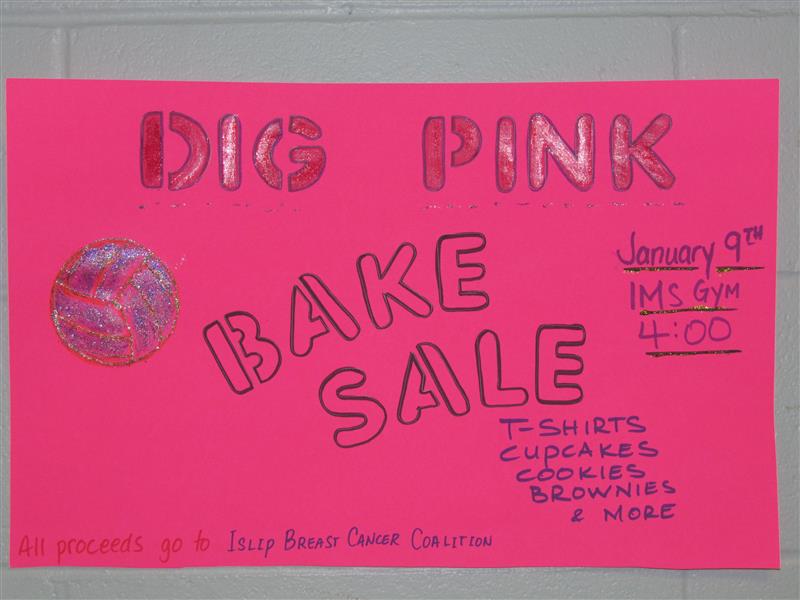 DIG PINK
January 9TH
IMS GYM
4:00
BAKE
SALE
T-SHIRTS
CUPCAKES
COOKIES
BROWNIES
& MORE
All proceeds go to ISLIP BREAST CANCER COALITION